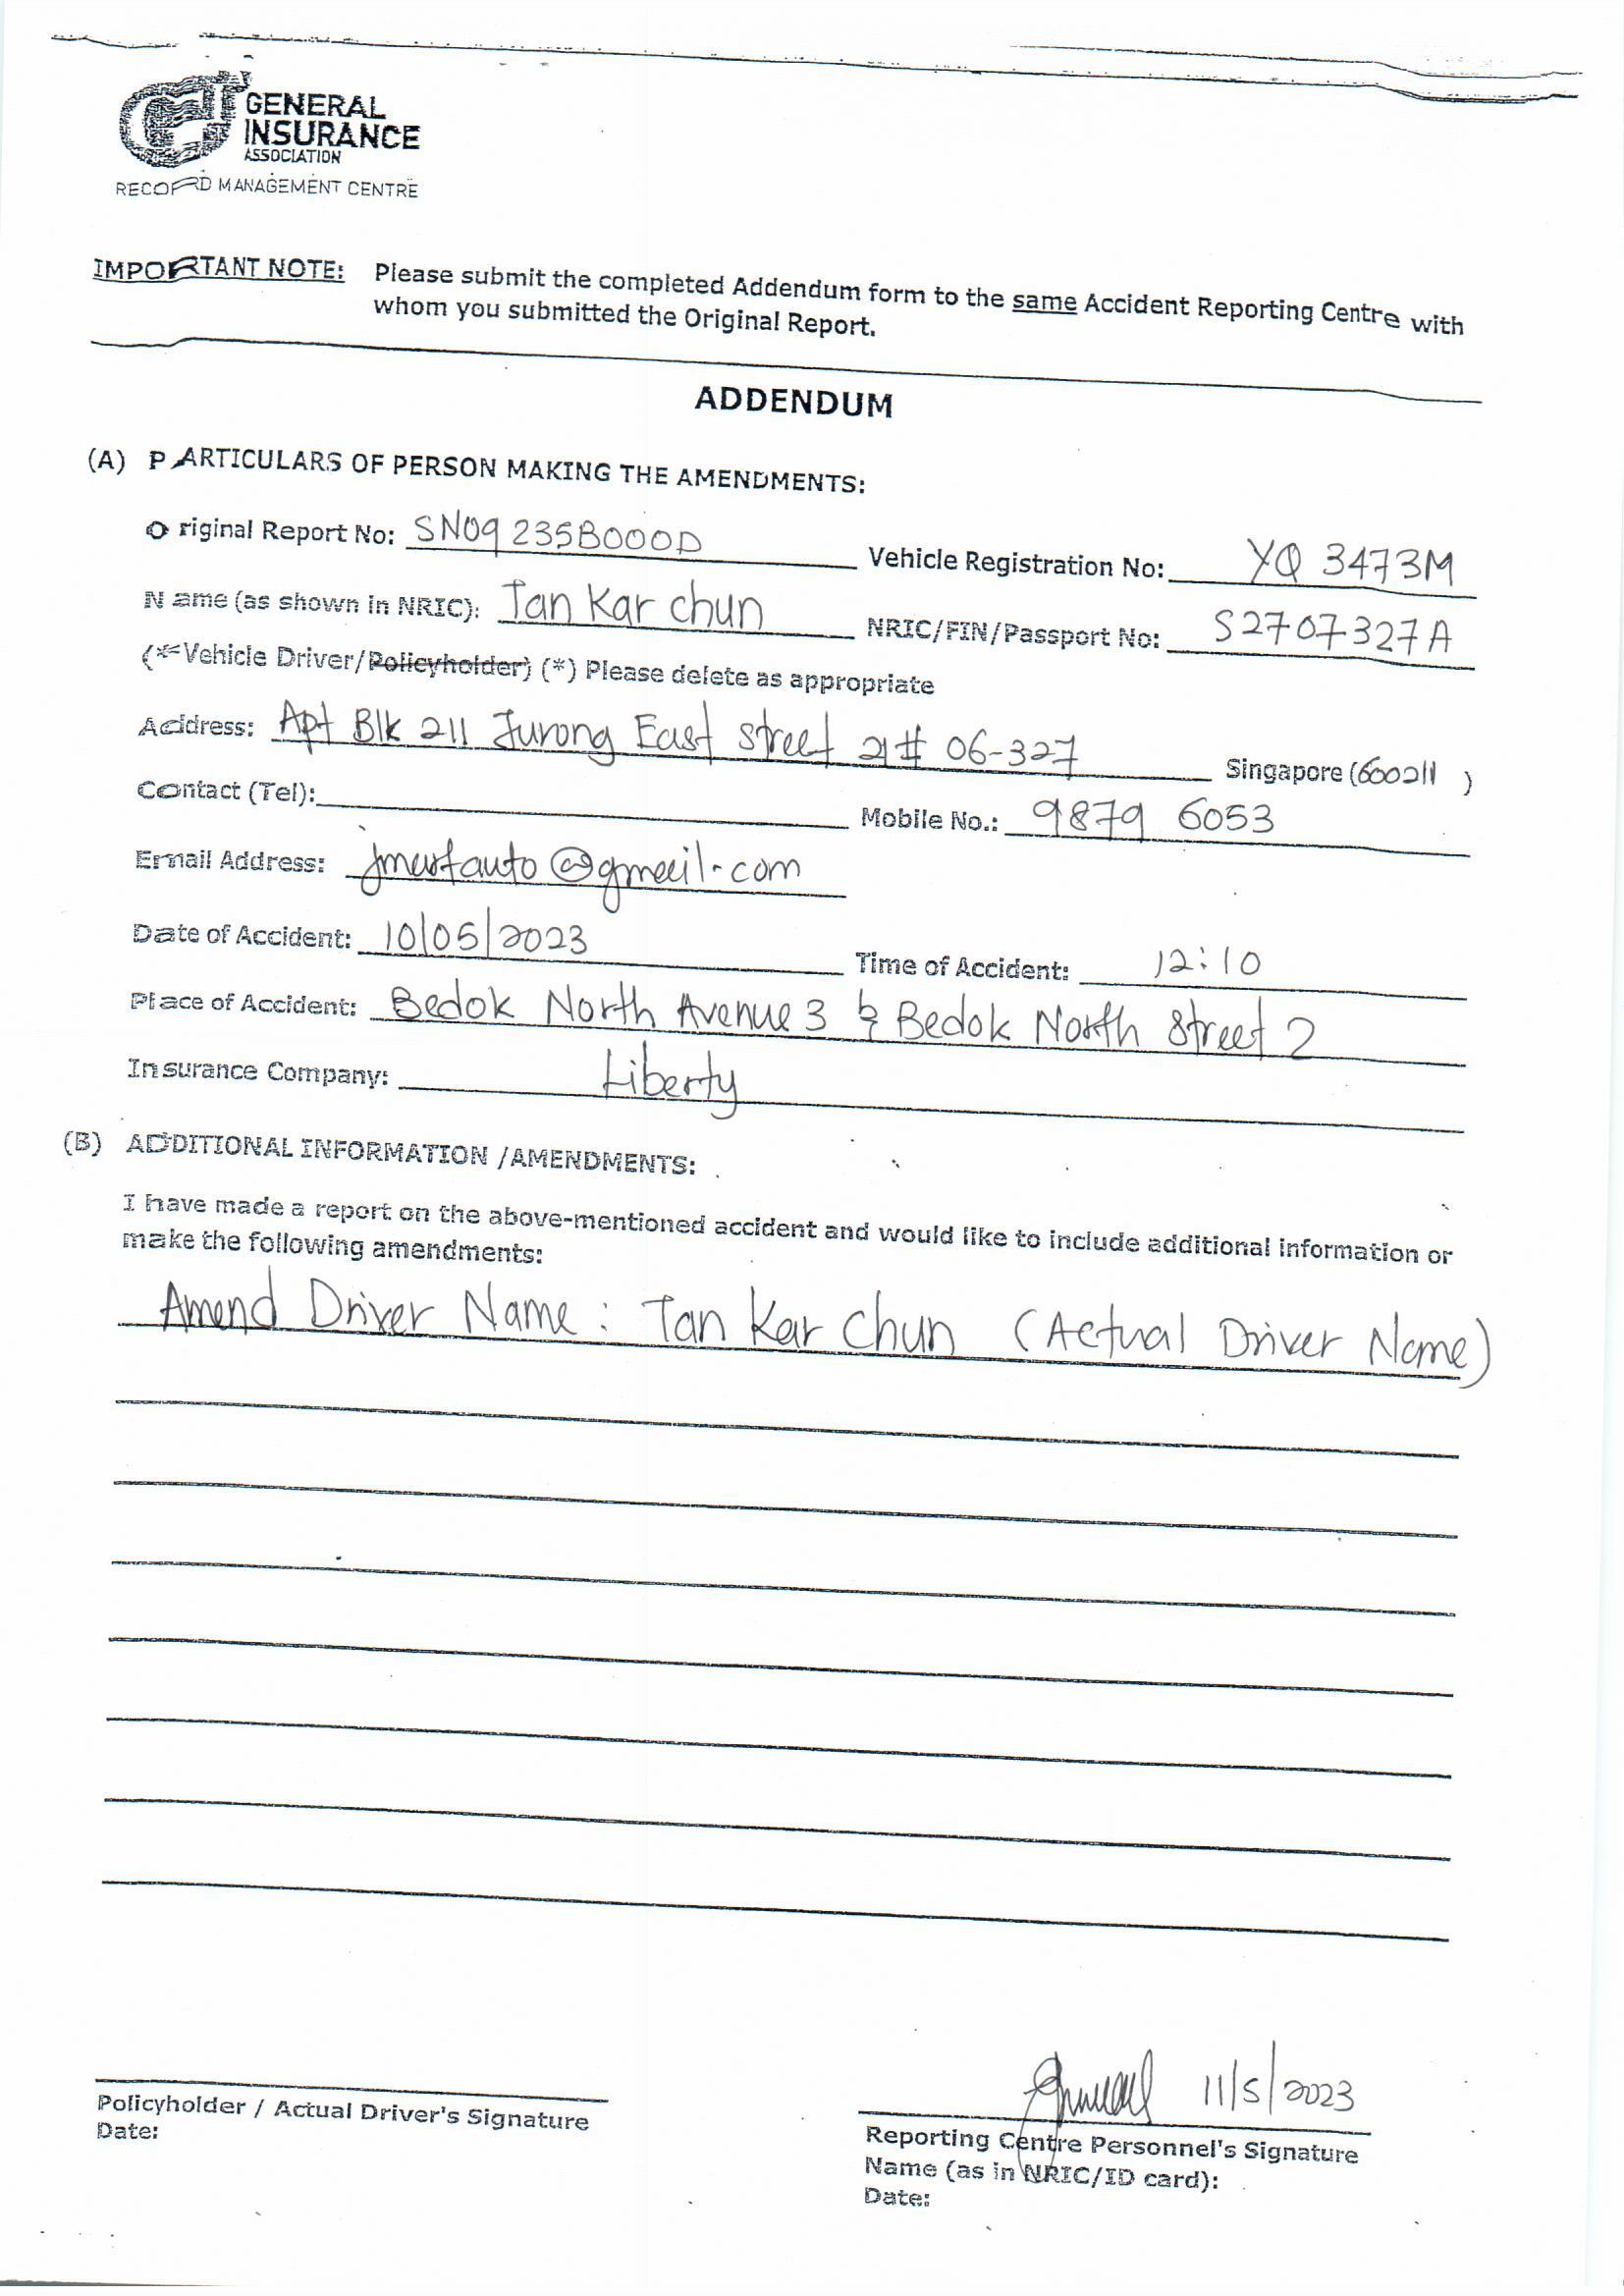 GENERAL
INSURANCE
ASSOCIATION
RECORD MANAGEMENT CENTRE
IMPORTANT NOTE: Please submit the completed Addendum form to the same Accident Reporting Centre with
whom you submitted the Original Report.
ADDENDUM
(A) PARTICULARS OF PERSON MAKING THE AMENDMENTS:
Original Report No: SN09235B000D Vehicle Registration No: YQ 3473M
Name (as shown in NRIC): Tan Kar chun NRIC/FIN/Passport No: S2707327A
(*Vehicle Driver/Policyholder) (*) Please delete as appropriate
Address: Apt Blk 211 Jurong East street 21 # 06-327 Singapore (600211)
Contact (Tel): Mobile No.: 9879 6053
Email Address: @gmail.com
Date of Accident: 10/05/2023 Time of Accident: 12:10
Place of Accident: Bedok North Avenue 3 & Bedok North Street 2
Insurance Company: Liberty
(B) ADDITIONAL INFORMATION /AMENDMENTS:
I have made a report on the above-mentioned accident and would like to include additional information or
make the following amendments:
Amend Driver Name : Tan Kar Chun (Actual Driver Name)
11/5/2023
Policyholder / Actual Driver's Signature
Date:
Reporting Centre Personnel's Signature
Name (as in NRIC/ID card):
Date: